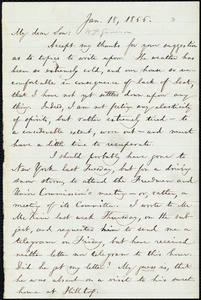 Jan. 18, 1866.
My dear Son:
Accept my thanks for your suggestion
as to topics to write upon. The weather has
been so extremely cold, and our house so un-
comfortable in consequence of lack of heat,
that I have not yet attempted any
thing. Indeed, I am not feeling any elasticity
of spirits, but rather extremely tired—to
a considerable extent, worn out—and must
have a little time to recuperate.
I should probably have gone to
New York last Tuesday, but for a driving
snow storm, to attend the Freedmen's and
Union Commission's meeting or, rather, a
meeting of its Committee. I wrote to Mr.
McKim last week Thursday, on the sub-
ject, and requested him to send me a
telegram on Friday, but have received
neither letter nor telegram to this hour.
Did he get my letter? My guess is, that
he was absent on a visit to his sweet
home at Hilltop.